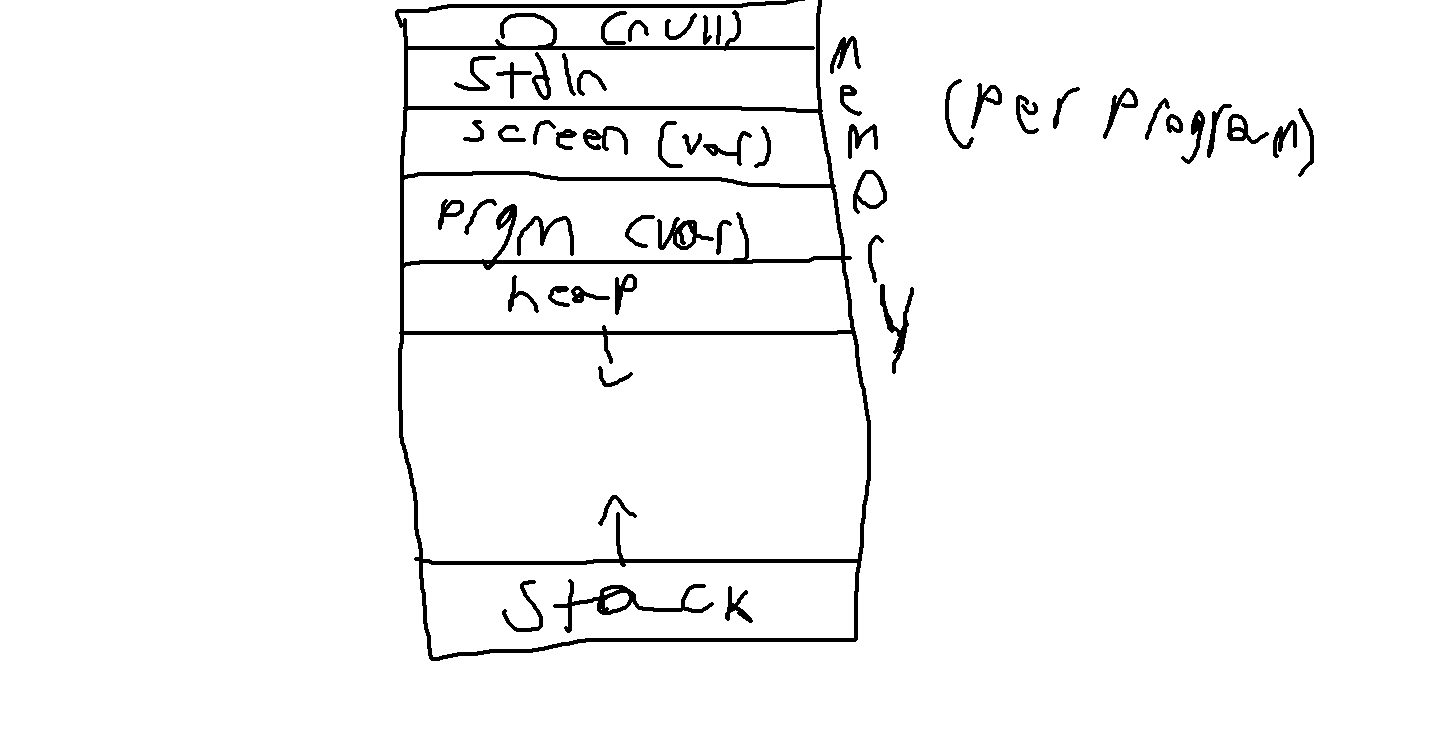 0 (null)
StdIn
screen (var)
prgm (var)
heap
Stack
memory
(per program)